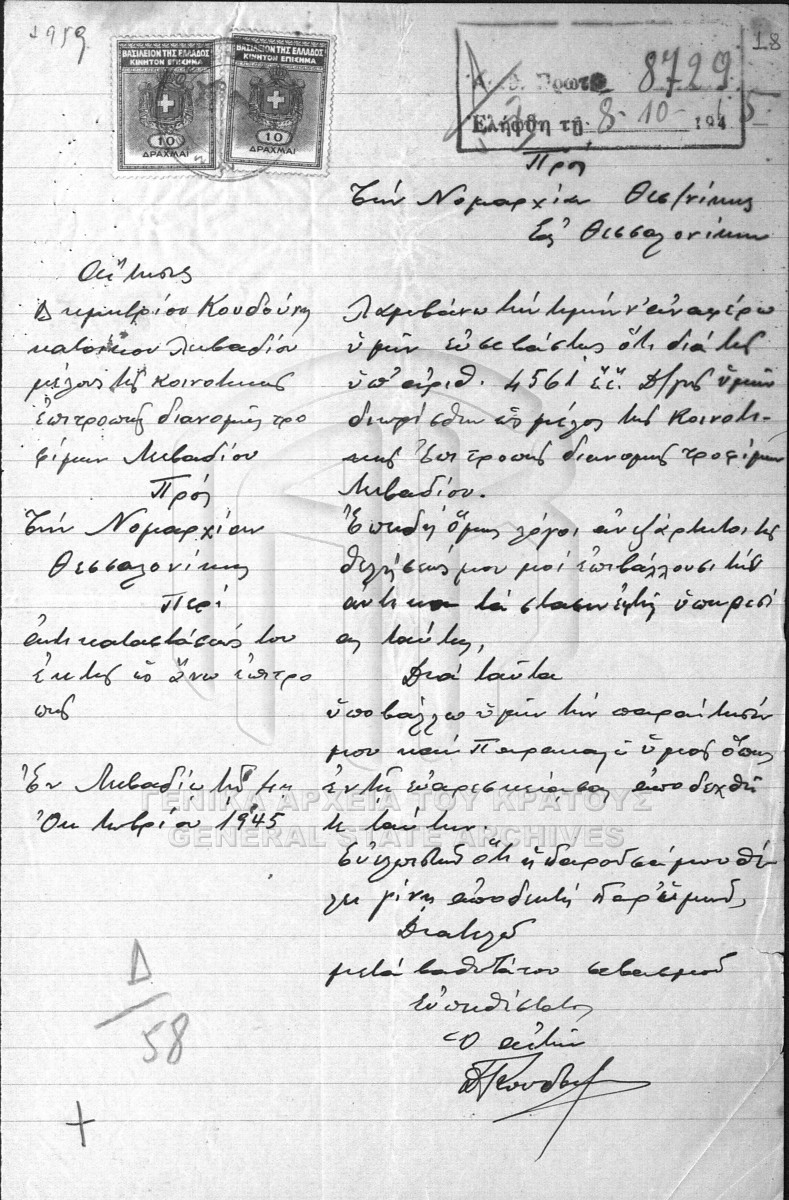 1959
18
ΒΑΣΙΛΕΙΟΝ ΤΗΣ ΕΛΛΑΔΟΣ
ΚΙΝΗΤΟΝ ΕΠΙΣΗΜΑ
10
ΔΡΑΧΜΑΙ
ΒΑΣΙΛΕΙΟΝ ΤΗΣ ΕΛΛΑΔΟΣ
ΚΙΝΗΤΟΝ ΕΠΙΣΗΜΑ
10
ΔΡΑΧΜΑΙ
Πρωτ 8729
Ἐλήφθη τῇ 8-10-1945
Πρός
Τήν Νομαρχίαν Θεσ/νίκης
Εἰς Θεσσαλονίκην
Αἴτησις
Δημητρίου Κουδούνη
κατοίκου Λιβαδίου
μέλους τῆς κοινοτικῆς
ἐπιτροπῆς διανομῆς τρο
φίμων Λιβαδίου
Πρός
Τήν Νομαρχίαν
Θεσσαλονίκης
Περί
ἀντικαταστάσεώς του
ἐκ τῆς ὡς ἄνω ἐπιτρο
πῆς
Ἐν Λιβαδίῳ τῇ 4ῃ
Ὀκτωβρίου 1945
Λαμβάνω τήν τιμήν ν' ἀναφέρω
ὑμῖν εὐσεβάστως ὅτι διά τῆς
ὑπ' ἀριθ. 4561 ἔ.ἔ. Δ/γῆς ὑμῶν
διωρίσθην ὡς μέλος τῆς Κοινοτι-
κῆς Ἐπιτροπῆς διανομῆς τροφίμων
Λιβαδίου.
Ἐπειδή ὅμως λόγοι ἀνεξάρτητοι τῆς
θελήσεώς μου μοί ἐπιβάλλουσι τήν
ἀντικατάστασιν ἐκ τῆς ὑπηρεσί
ας ταύτης,
Διά ταῦτα
ὑποβάλλω ὑμῖν τήν παραίτησίν
μου καί Παρακαλῶ ὑμᾶς ὅπως
ἐν τῇ εὐαρεσκείᾳ σας ἀποδεχθῆ
τε ταύτην.
Εὐελπιστῶν ὅτι ἡ παροῦσά μου θέ
λει γίνῃ ἀποδεκτή παρ' ὑμῶν,
Διατελῶ
μετά βαθυτάτου σεβασμοῦ
Εὐπειθέστατος
Ὁ αἰτῶν
Δ
58
ΓΕΝΙΚΑ ΑΡΧΕΙΑ ΤΟΥ ΚΡΑΤΟΥΣ
GENERAL STATE ARCHIVES